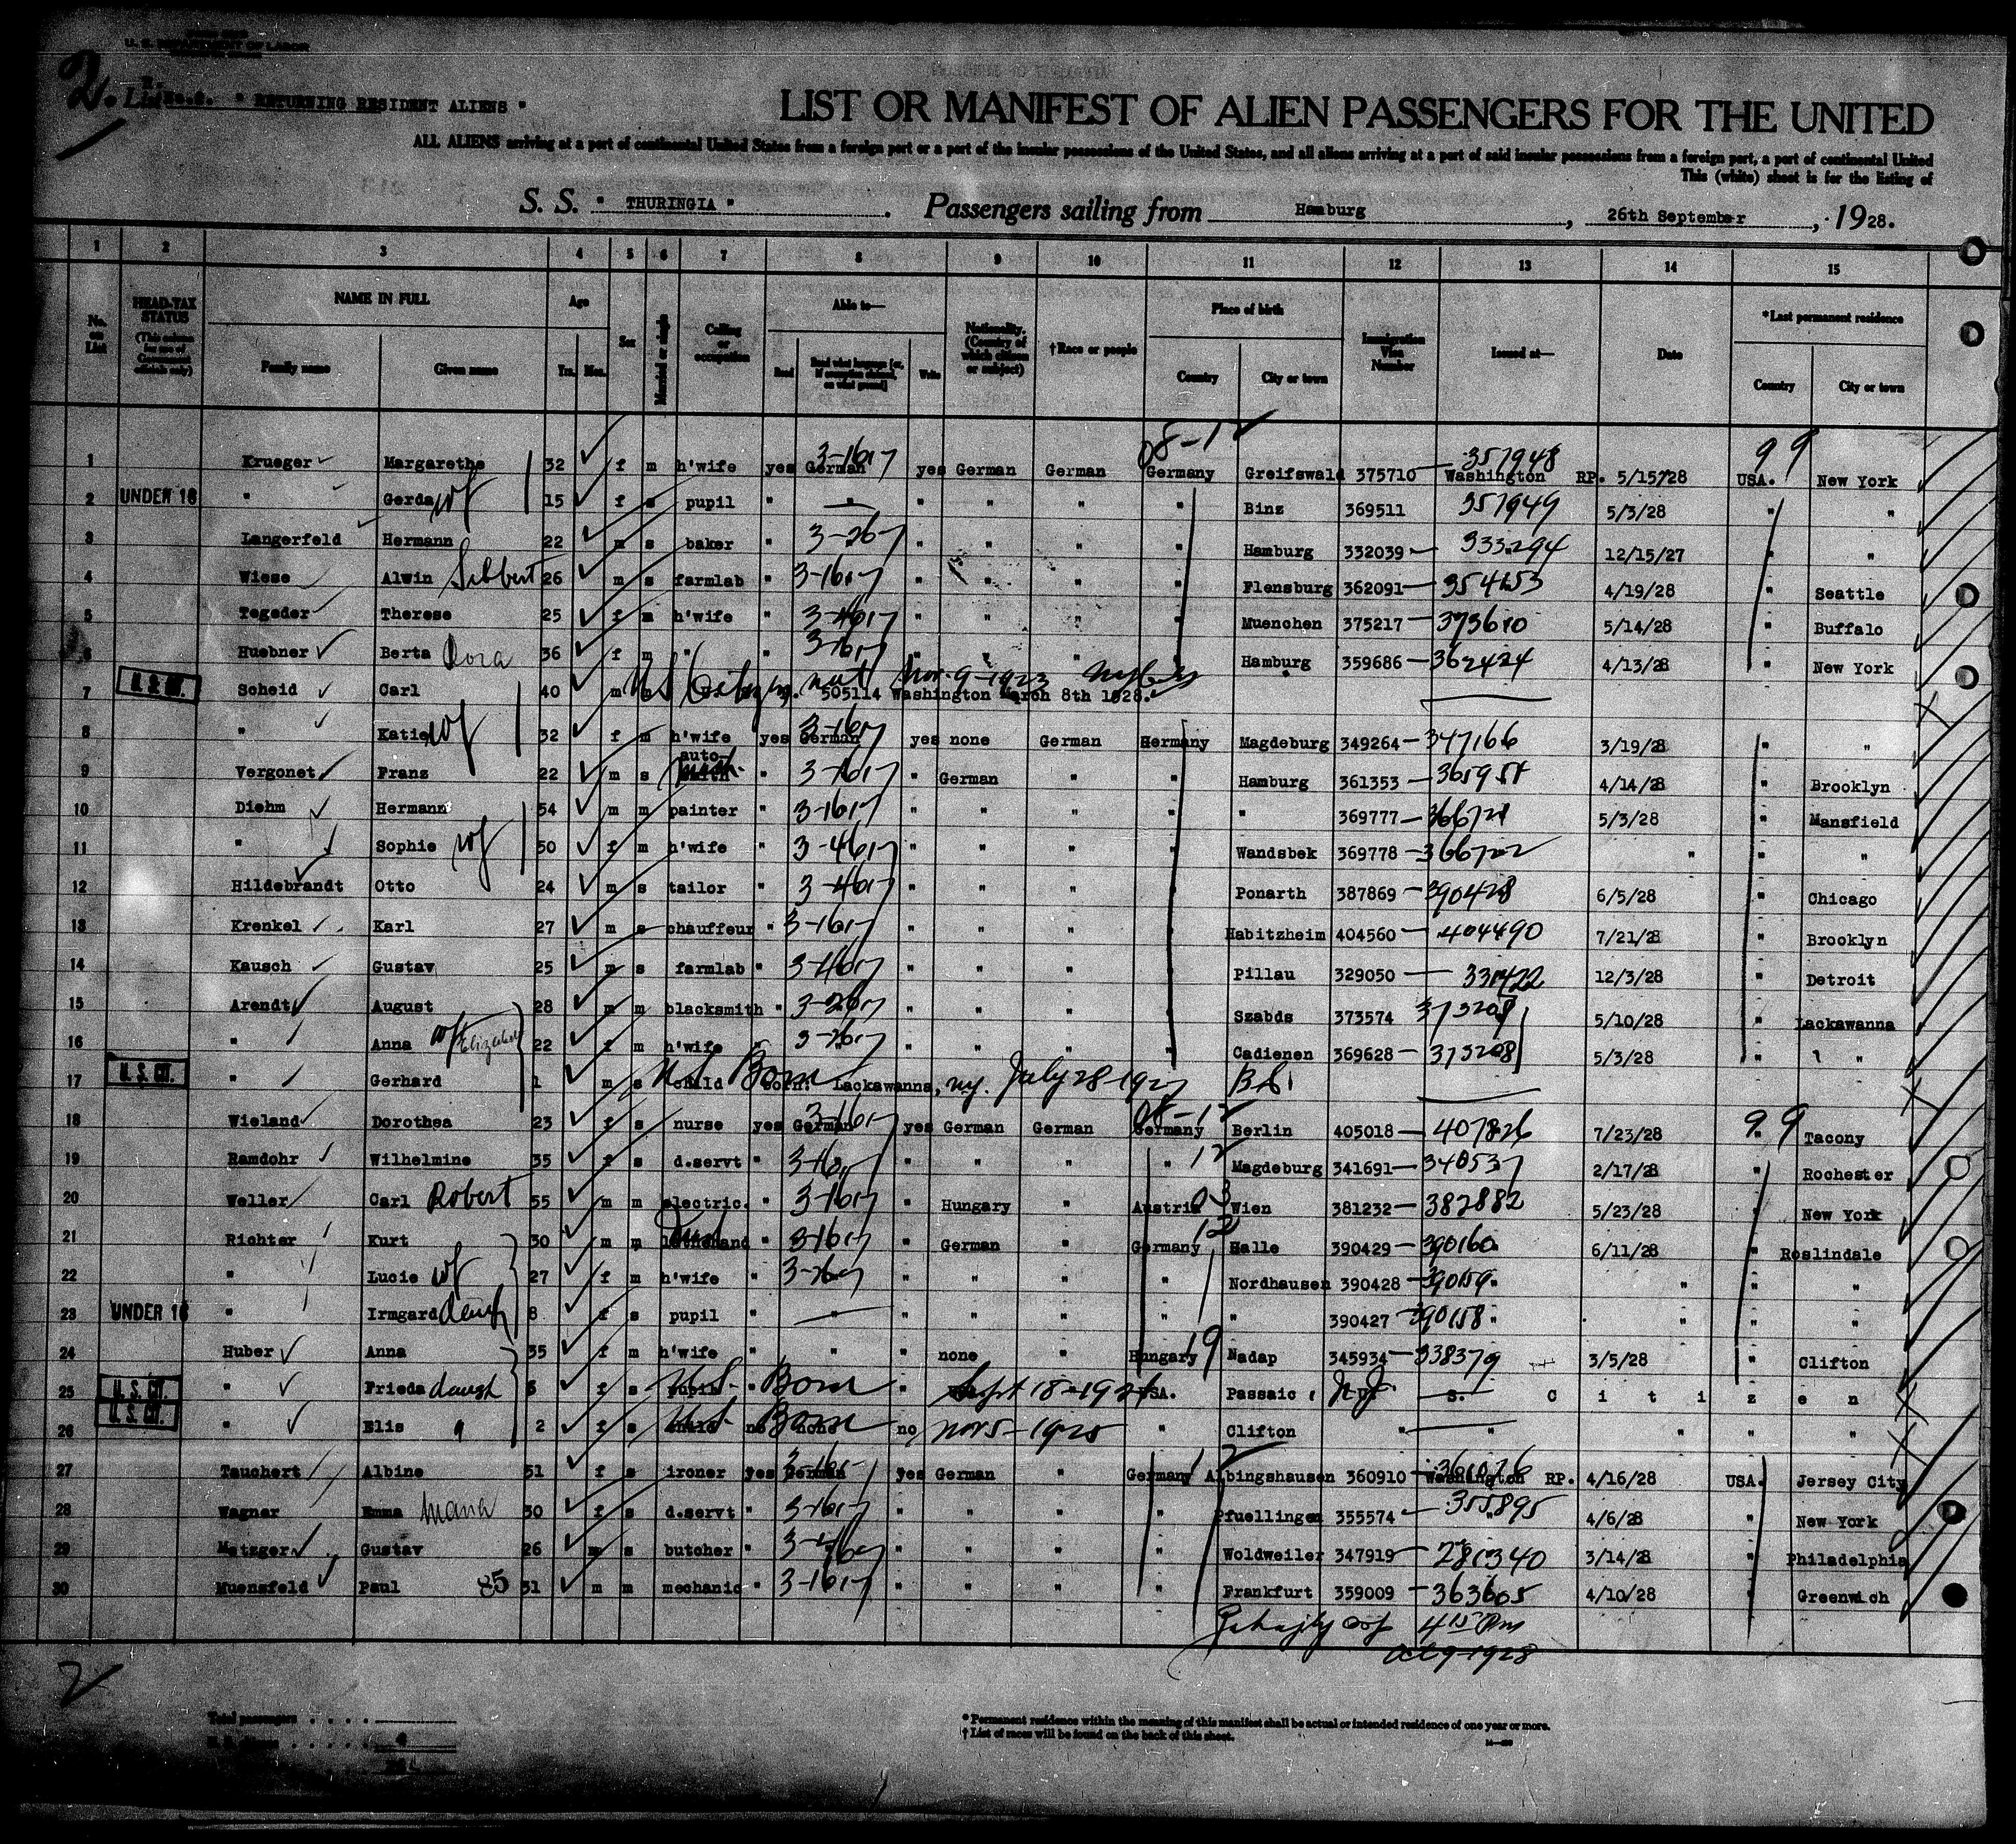 U. S. DEPARTMENT OF LABOR
2. List " RETURNING RESIDENT ALIENS "
LIST OR MANIFEST OF ALIEN PASSENGERS FOR THE UNITED
ALL ALIENS arriving at a port of continental United States from a foreign port or a port of the insular possessions of the United States, and all aliens arriving at a port of said insular possessions from a foreign port, a port of continental United
This (white) sheet is for the listing of
S. S. " THURINGIA " . Passengers sailing from Hamburg , 26th September , 1928.
1 2 3 4 5 6 7 8 9 10 11 12 13 14 15
No. on List HEAD-TAX STATUS NAME IN FULL Age Sex Married or single Calling or occupation Able to— Nationality. (Country of which citizen or subject) †Race or people Place of birth Immigration Visa Number Issued at— Date *Last permanent residence
Family name Given name Yrs. Mos. Read Read what language [or, if exemption claimed, on what ground] Write Country City or town Country City or town
1 Krueger Margarethe 32 f m h'wife yes German 3-1617 yes German German Germany 08-12 Greifswald 375710 357948 Washington RP. 5/15/28 USA. 99 New York
2 UNDER 16 " Gerda 15 f s pupil " — " " " " Binz 369511 357949 5/3/28 " "
3 Langerfeld Hermann 22 m s baker " 3-2617 " " " " Hamburg 332039 333294 12/15/27 " "
4 Wiese Alwin 26 m s farmlab " 3-1617 " " " " Flensburg 362091 4/19/28 " Seattle
5 Tegeder Therese 25 f m h'wife " " " " " Muenchen 375217 373610 5/14/28 " Buffalo
6 Huebner Berta Dora 36 f m " " 3-1617 " " " " Hamburg 359686 362424 4/13/28 " New York
7 U. S. CIT. Scheid Carl 40 m m US Citizen. nat Nov. 9-1923 505114 Washington March 8th 1928.
8 " Katie wf 32 f m h'wife yes German 3-1617 yes none German Germany Magdeburg 349264 347166 3/19/28 " "
9 Vergonet Franz 22 m s auto mech. " 3-1617 " German " " Hamburg 361353 4/14/28 " Brooklyn
10 Diehm Hermann 54 m m painter " 3-1617 " " " " " 369777 366721 5/3/28 " Mansfield
11 " Sophie wf 50 f m h'wife " 3-4617 " " " " Wandsbek 369778 366722 " " "
12 Hildebrandt Otto 24 m s tailor " 3-4617 " " " " Ponarth 387869 390428 6/5/28 " Chicago
13 Krenkel Karl 27 m s chauffeur " 3-1617 " " " " Habitzheim 404560 404490 7/21/28 " Brooklyn
14 Kausch Gustav 25 m s farmlab " 3-4617 " " " " Pillau 329050 12/3/28 " Detroit
15 Arendt August 28 m m blacksmith " 3-2617 " " " " Szabds 373574 373208 5/10/28 " Lackawanna
16 " Anna wf Elizabeth 22 f m h'wife " 3-2617 " " " " Cadienen 369628 373208 5/3/28 " "
17 U. S. CIT. " Gerhard 1 m s child US Born born: Lackawanna, ny. July 28-1927 B.C.
18 Wieland Dorothea 23 f s nurse yes German 3-1617 yes German German Germany 08-12 Berlin 405018 407826 7/23/28 " 99 Tacony
19 Ramdohr Wilhelmine 35 f s d.servt " " " " " 12 Magdeburg 341691 340537 2/17/28 " Rochester
20 Weller Carl Robert 55 m m electric. " 3-1617 " Hungary " Austria 03 Wien 381232 382882 5/23/28 " New York
21 Richter Kurt 30 m m " 3-1617 " German " Germany 12 Halle 390429 390160 6/11/28 " Roslindale
22 " Lucie wf 27 f m h'wife " 3-2617 " " " " Nordhausen 390428 390159 " " "
23 UNDER 16 " Irmgard daugh 8 f s pupil " — " " " " " 390427 390158 " " "
24 Huber Anna 35 f m h'wife " " " none " Hungary 19 Nadap 345934 338379 3/5/28 " Clifton
25 U. S. CIT. " Frieda daugh f s pupil US Born " Sept 18-1921 USA. Passaic, N.J. U. S. C i t i z e n
26 U. S. CIT. " Elis " 2 f s child US Born no none no Nov 5-1925 Clifton " " " " "
27 Tauchert Albine 51 f s ironer yes German 3-1617 yes German " Germany 12 Albingshausen 360910 361026 Washington RP. 4/16/28 USA. Jersey City
28 Wagner Emma Maria 30 f s d.servt " 3-1617 " " " " Pfuellingen 355574 355895 4/6/28 " New York
29 Metzger Gustav 26 m s butcher " " " " " Woldweiler 347919 281340 3/14/28 " Philadelphia
30 Muensfeld Paul 35 31 m m mechanic " 3-1617 " " " " Frankfurt 359009 363605 4/10/28 " Greenwich
4 15 Pm
Oct 9-1928
2
Total passengers . . . .
* Permanent residence within the meaning of this manifest shall be actual or intended residence of one year or more.
† List of races will be found on the back of this sheet.